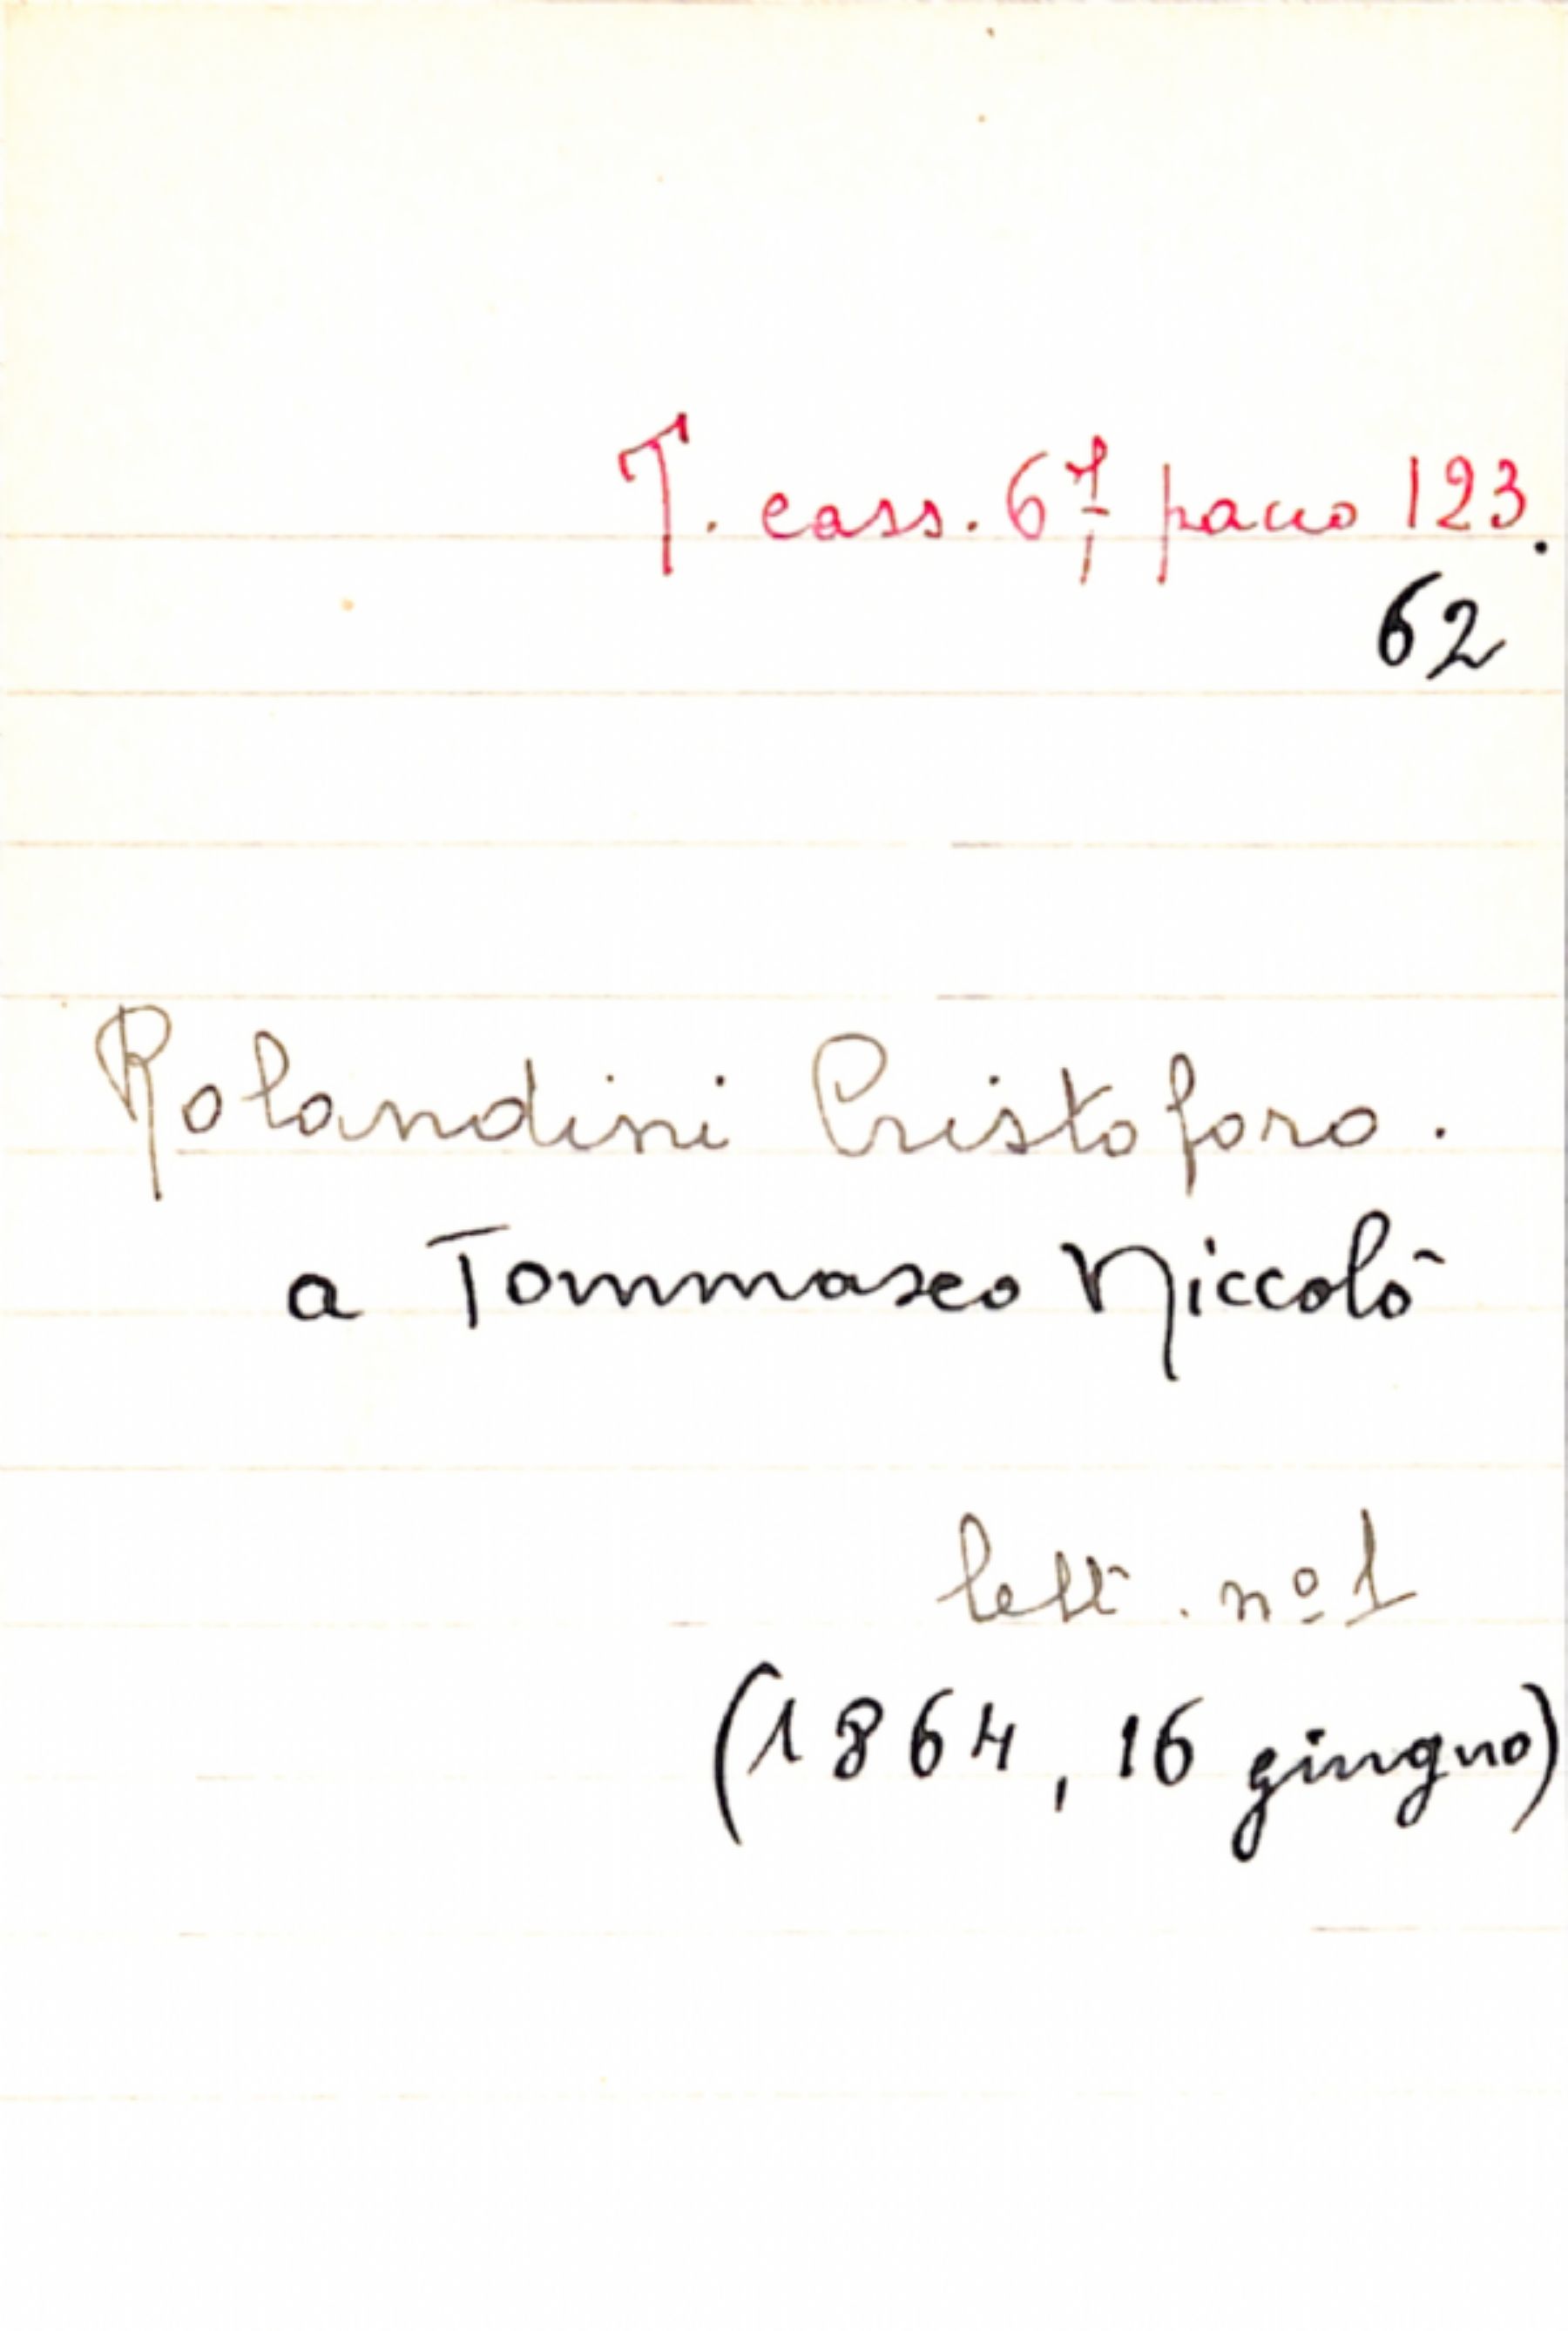 T. cass. 6ª, pacco 123.
62
Rolandini Cristoforo.
a Tommaseo Niccolò
lett. nº 1
(1864, 16 giugno)